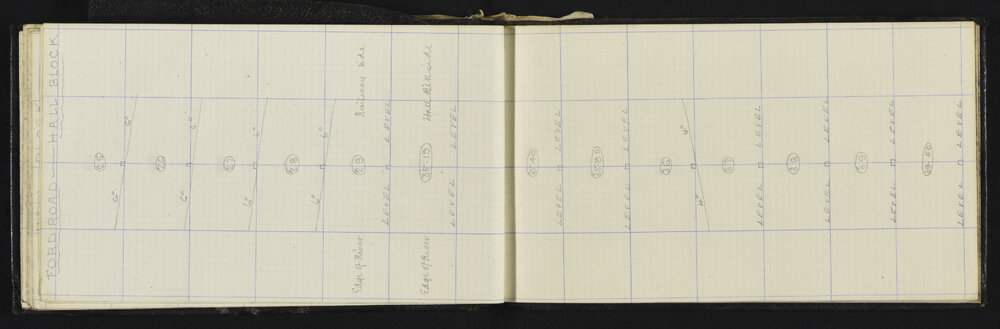 FORD ROAD — HALL BLOCK
6° 25 6°
6° 26 6°
6° 27 6°
6° 28 6°
Edge of River 29 Railway side
LEVEL LEVEL
Edge of River Hall Blk side
LEVEL LEVEL
LEVEL LEVEL
LEVEL LEVEL
4° 36 4°
LEVEL 37 LEVEL
LEVEL 38 LEVEL
LEVEL 39 LEVEL
LEVEL LEVEL